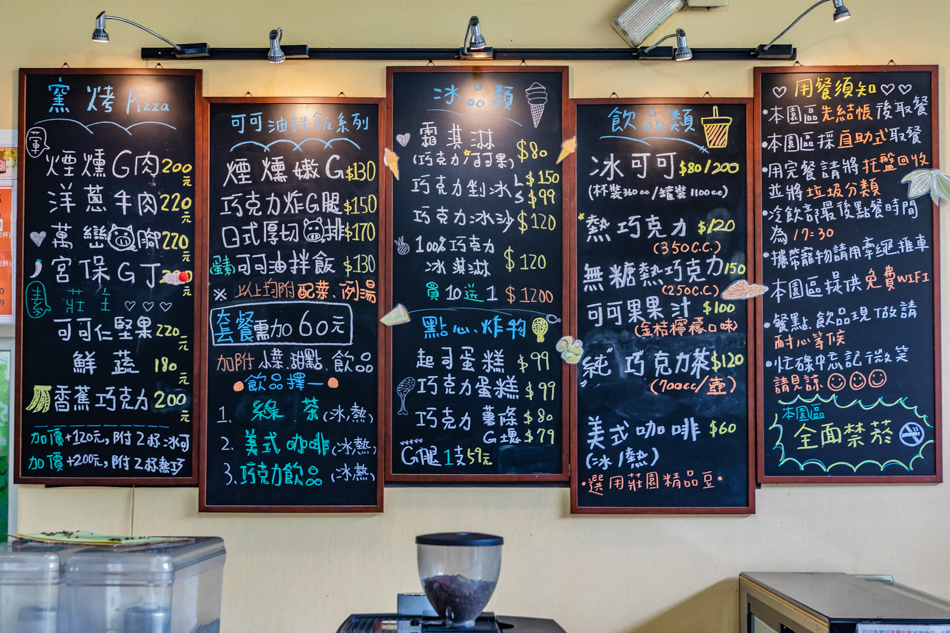 窯烤Pizza
葷
煙燻G肉200元
洋蔥牛肉220元
萬巒豬腳220元
宮保G丁
素 莊主
可可仁堅果220元
鮮蔬180元
香蕉巧克力200元
加價+120元,附2杯冰可
加價+200元,附2杯熱巧
可可油拌飯系列
煙燻嫩G$130
巧克力炸G腿$150
日式厚切豬排$170
可可油拌飯$130
※以上均附配菜、例湯
套餐需加60元
加附小菜.甜點.飲品
飲品擇一
1. 綠茶(冰.熱)
2. 美式咖啡(冰.熱)
3. 巧克力飲品(冰.熱)
冰品類
霜淇淋
(巧克力/可可果)$80
巧克力剉冰 L $150
S $99
巧克力冰沙$120
100%巧克力
冰淇淋 $120
買10送1 $1200
點心.炸物
起司蛋糕$99
巧克力蛋糕$99
巧克力薯條$80
G塊$79
G腿1支59元
飲品類
冰可可$80/200
(杯裝360cc/罐裝1100cc)
熱巧克力$120
(350c.c.)
無糖熱巧克力150
(250c.c.)
可可果果汁$100
(金桔檸檬口味)
純巧克力茶$120
(700cc/壺)
美式咖啡$60
(冰/熱)
•選用莊園精品豆•
用餐須知
•本園區先結帳後取餐
•本園區採自助式取餐
•用完餐請將托盤回收
並將垃圾分類
•冷飲部最後點餐時間
為17:30
•攜帶寵物請用牽繩.推車
•本園區提供免費WIFI
•餐點.飲品現做請
耐心等候
•忙碌中忘記微笑
請見諒
本園區
全面禁菸